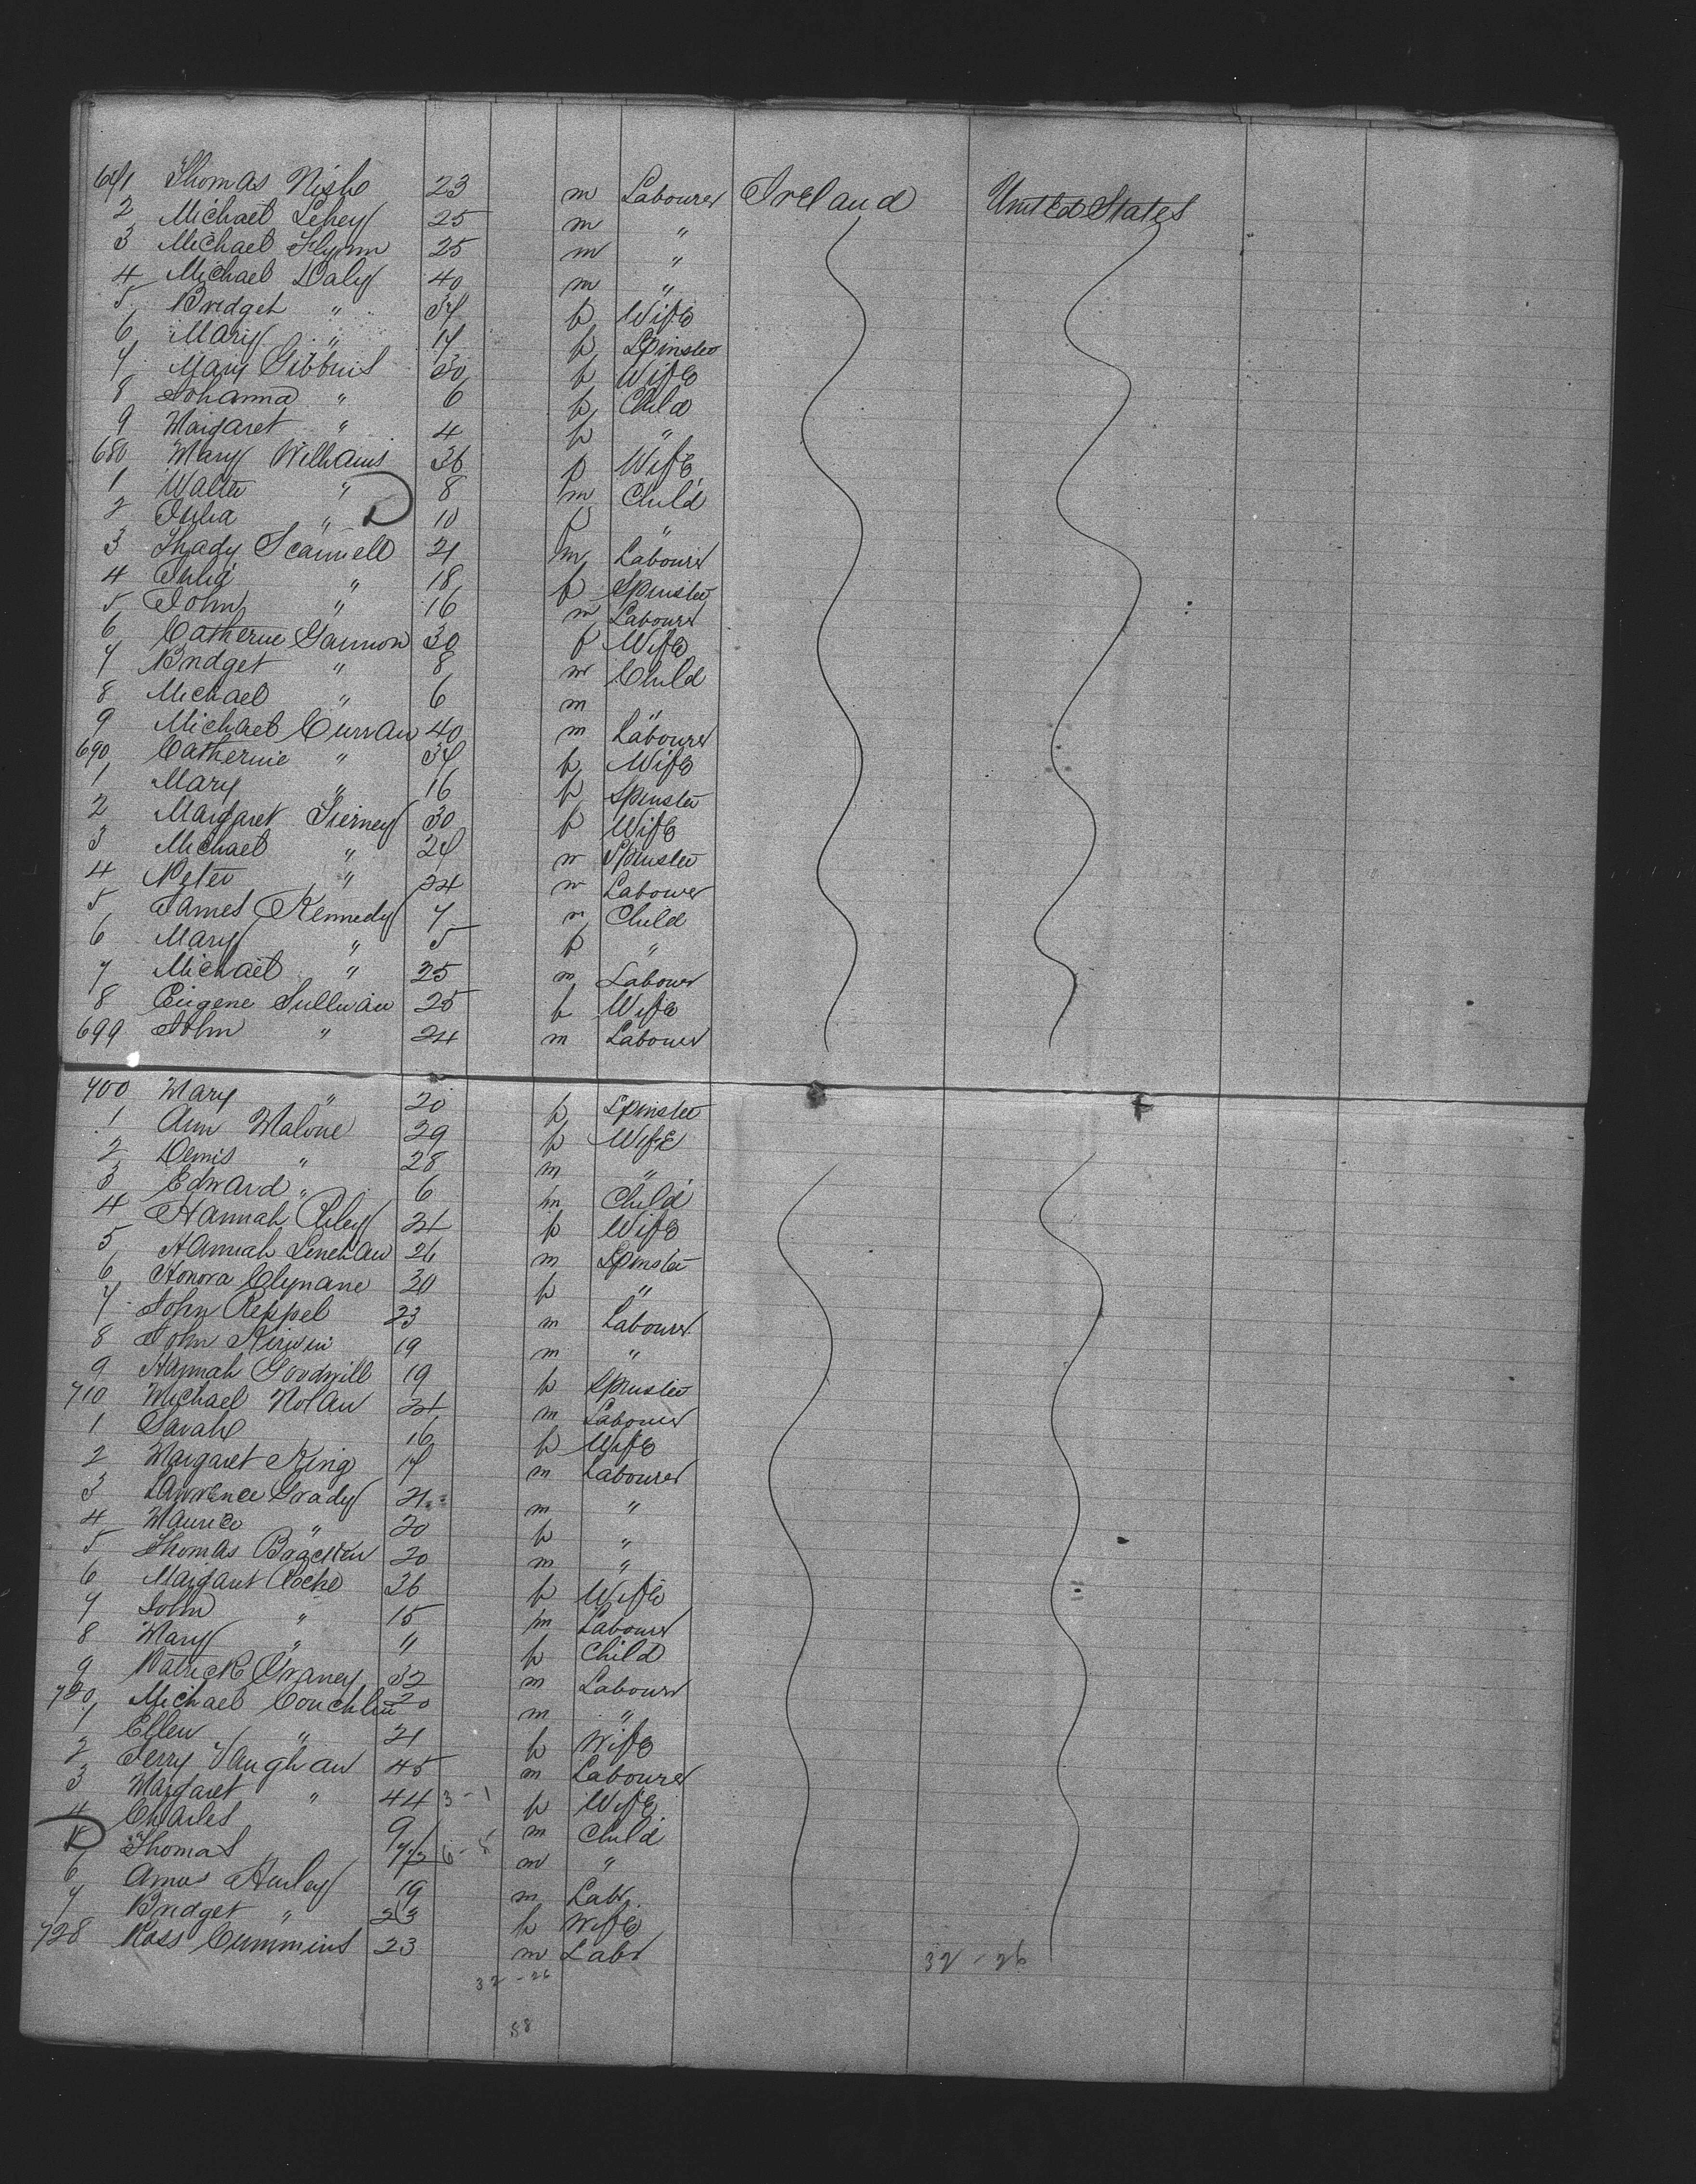 671 Thomas Nish 23 m Labourer Ireland United States
2 Michael Lehey 25 m "
3 Michael Flynn 25 m "
4 Michael Daly 40 m "
5 Bridget " 34 f Wife
6 Mary " 17 f Spinster
7 Mary Gibbins 30 f Wife
8 Johanna " 6 f Child
9 Margaret " 4 f "
680 Mary Williams 36 f Wife
1 Walter " 8 m Child
2 Julia " D 10 f "
3 Thady Scannell 21 m Labourer
4 Julia " 18 f Spinster
5 John " 16 m Labourer
6 Catherine Gannon 30 f Wife
7 Bridget " 8 m Child
8 Michael " 6 m "
9 Michael Curran 40 m Labourer
690 Catherine " 34 f Wife
1 Mary " 16 f Spinster
2 Margaret Tierney 30 f Wife
3 Michael " 27 m Spinster
4 Peter " 24 m Labourer
5 James Kennedy 7 m Child
6 Mary " 5 f "
7 Michael " 25 m Labourer
8 Eugene Sullivan 25 f Wife
699 John " 24 m Labourer
700 Mary " 20 f Spinster
1 Ann Malone 29 f Wife
2 Denis " 28 m "
3 Edward " 6 m Child
4 Hannah Riley 24 f Wife
5 Hannah Lenehan 26 m Spinster
6 Honora Clynane 30 f "
7 John Reppel 23 m Labourer
8 John Kirwin 19 m "
9 Hannah Goodwill 19 f Spinster
710 Michael Nolan 24 m Labourer
1 Sarah 16 f Wife
2 Margaret King 17 m Labourer
3 Lawrence Grady 21 m "
4 Maurice " 20 f "
5 Thomas 20 m "
6 Margaret Roche 36 f Wife
7 John " 15 m Labourer
8 Mary " 11 f Child
9 Patrick 32 m Labourer
720 Michael Couchlin 20 m "
1 Ellen " 21 f Wife
2 Terry Vaughan 45 m Labourer
3 Margaret " 44 3-1 f Wife
4 Charles 9 m Child
D 5 Thomas m "
6 Hurley 19 m Labr.
7 Bridget " 23 f Wife
728 Ross Cummins 23 m Labr
32-26 32-26
58